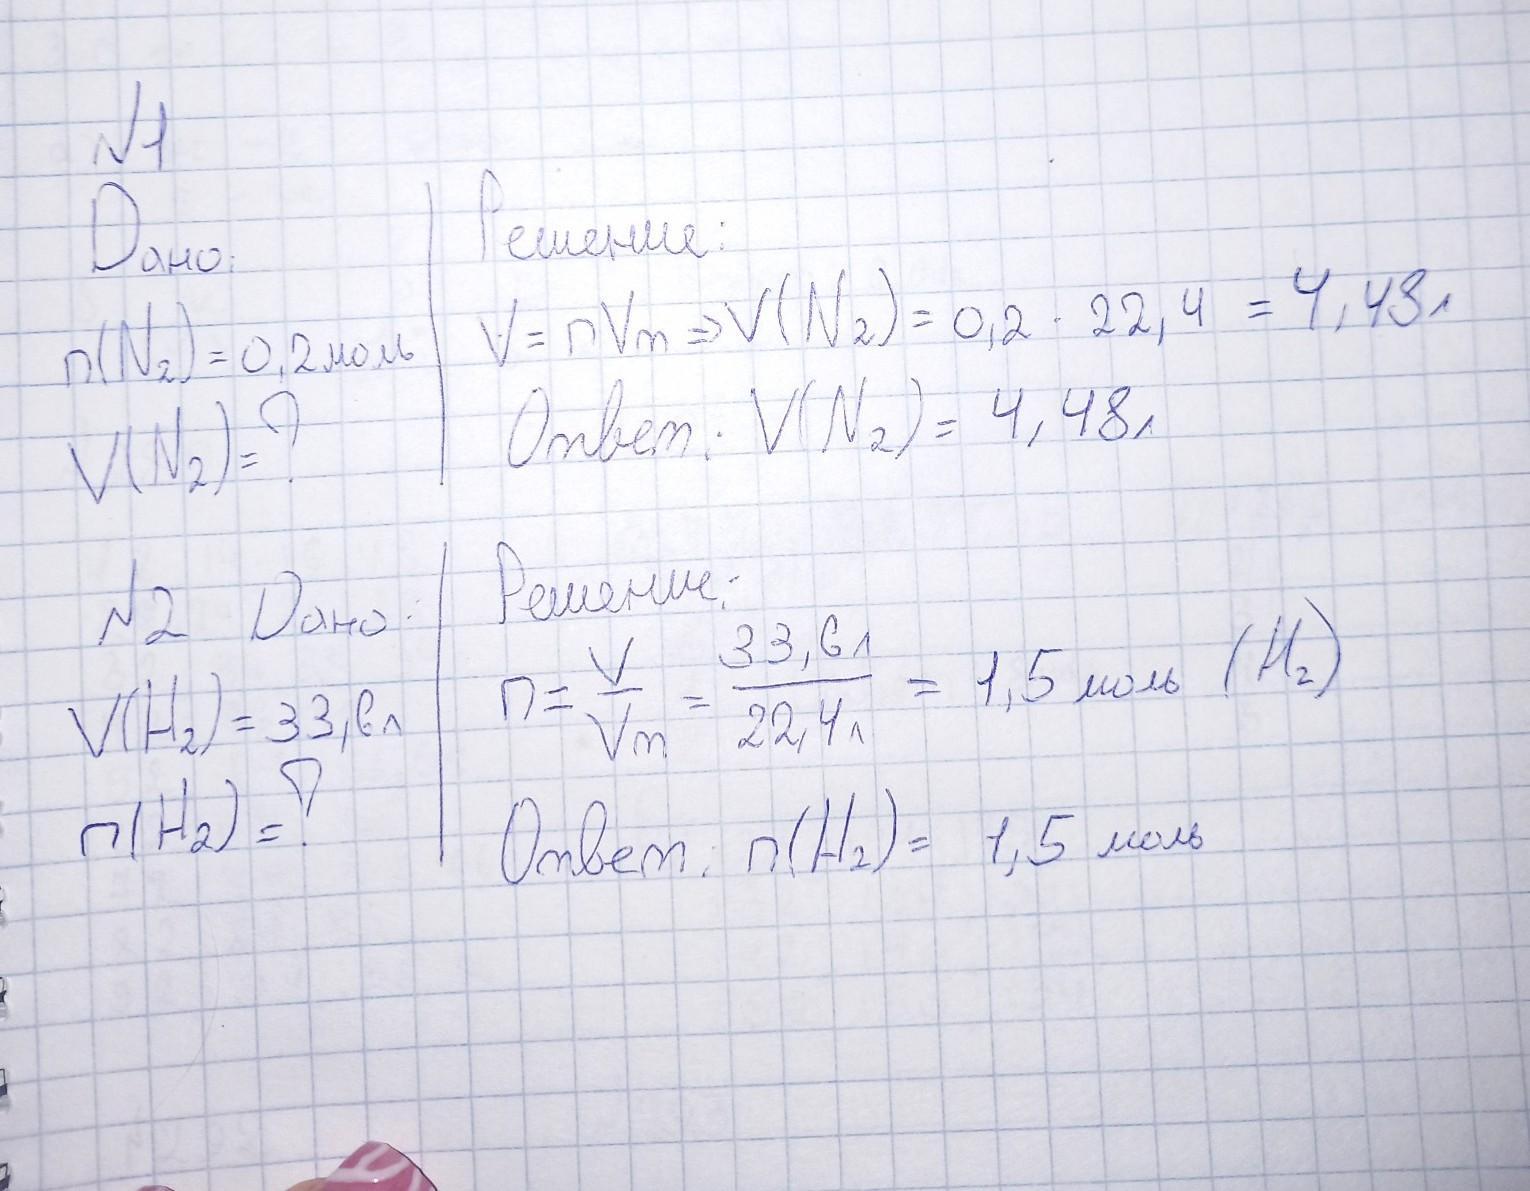 №1
Дано:
n(N₂)=0,2моль
V(N₂)=?
Решение:
V=nVm⇒V(N₂)=0,2·22,4=4,48л
Ответ: V(N₂)=4,48л
№2 Дано:
V(H₂)=33,6л
n(H₂)=?
Решение:
n=V/Vm=33,6л/22,4л=1,5моль (H₂)
Ответ: n(H₂)=1,5 моль